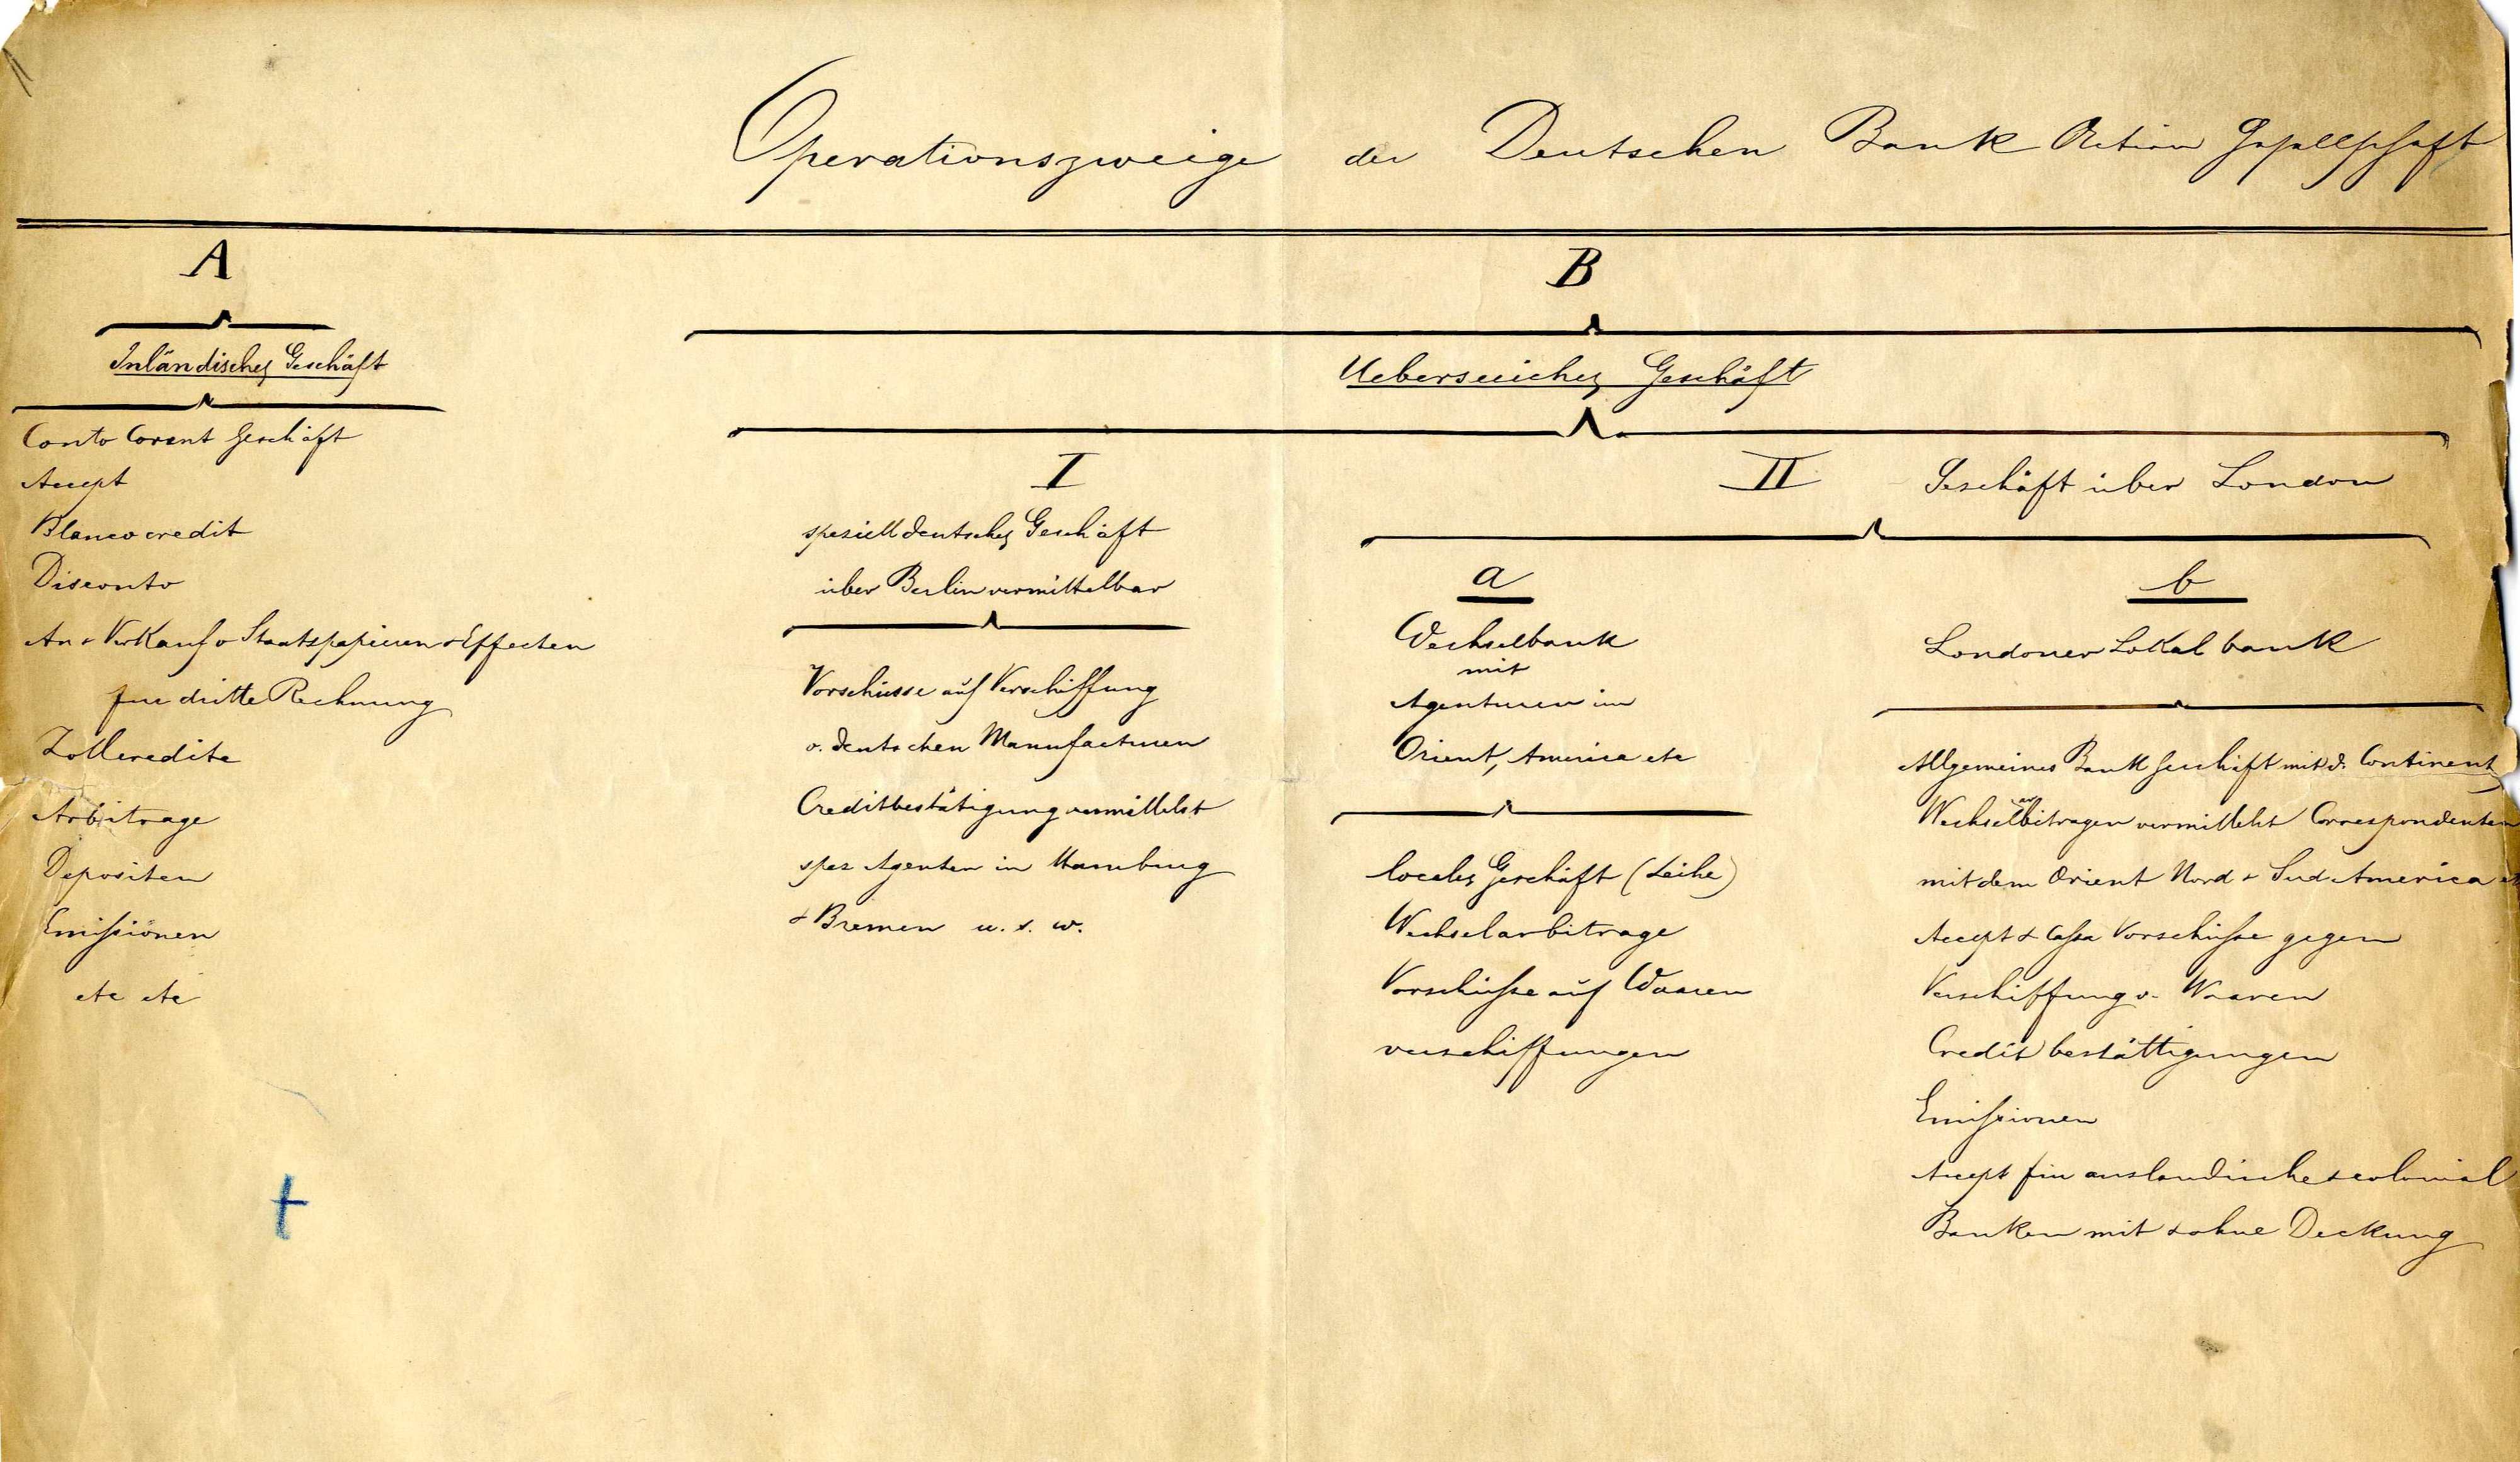 Operationszweige der Deutschen Bank Actien Gesellschaft
A
Inländisches Geschäft
Conto Corent Geschäft
Accept
Blancocredit
Disconto
An & Verkauf v Staatspapieren & Effecten
für dritte Rechnung
Zollcredite
Arbitrage
Depositen
Emissionen
etc etc
B
Ueberseeisches Geschäft
I
speziell deutsches Geschäft
über Berlin vermittelbar
Vorschüsse auf Verschiffung
v. deutschen Manufacturen
Creditbestätigung vermittelst
spez Agenten in Hamburg
& Bremen u. s. w.
II Geschäft über London
a
Wechselbank
mit
Agenturen im
Orient, America etc
locales Geschäft (Leihe)
Wechselarbitrage
Vorschüsse auf Waaren
verschiffungen
b
Londoner Lokalbank
Allgemeines Bank Geschäft mit d. Continent
Wechselarbitragen vermittelst Correspondenten
mit dem Orient Nord & Sud America etc
Accept & Cassa Vorschüsse gegen
Verschiffung v. Waaren
Credit bestättigungen
Emissionen
Accept für auslandische & colonial
Banken mit & ohne Deckung